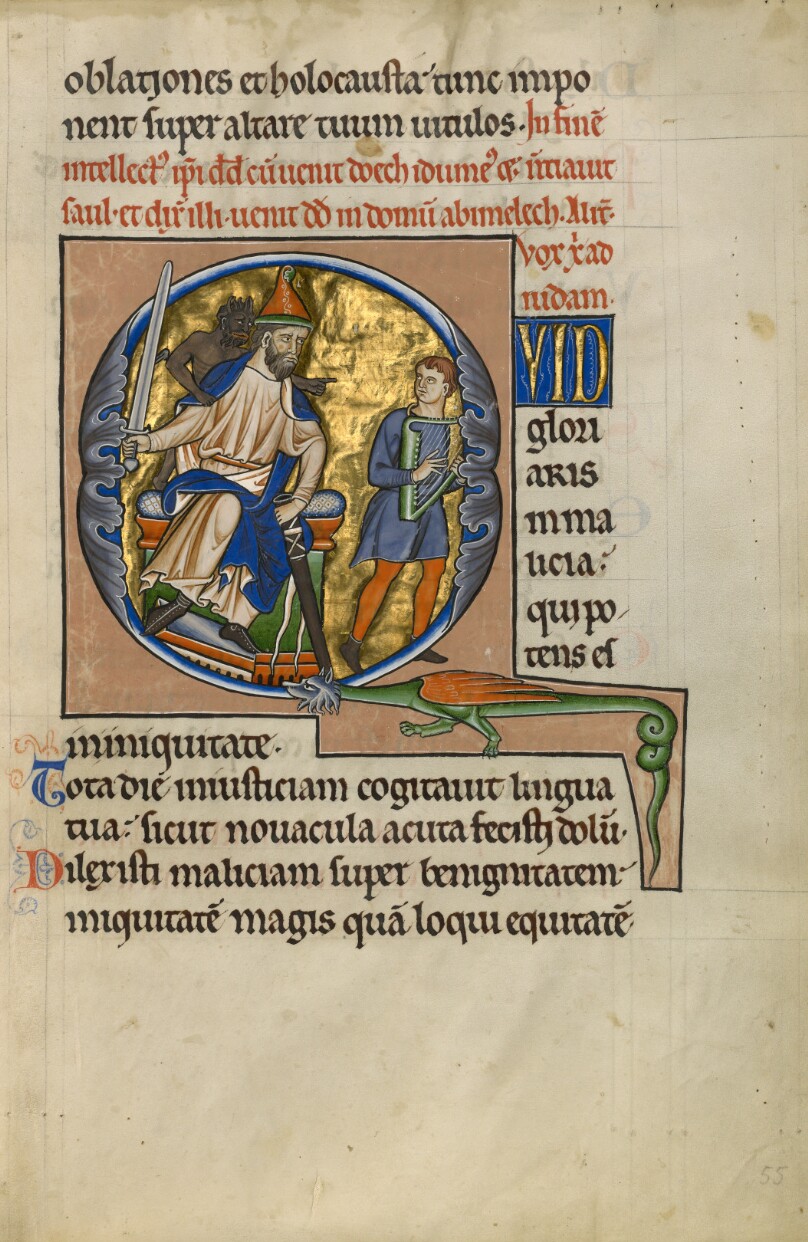 oblationes et holocausta tunc impo
nent super altare tuum uitulos. In finē
intellectꝰ ip̄i dd̄ cū uenit doech idumeꝰ & n̄tiauit
saul. et dix̄ illi. uenit dd̄ in domū abimelech. Alit̄.
Vox x̄ ad
iudam.
Q VID
glori
aris
in ma
licia:
qui po
tens es
in iniquitate.
Tota die iniusticiam cogitauit lingua
tua: sicut nouacula acuta fecisti dolū.
Dilexisti maliciam super benignitatem
iniquitatē magis quā loqui equitatē.
55